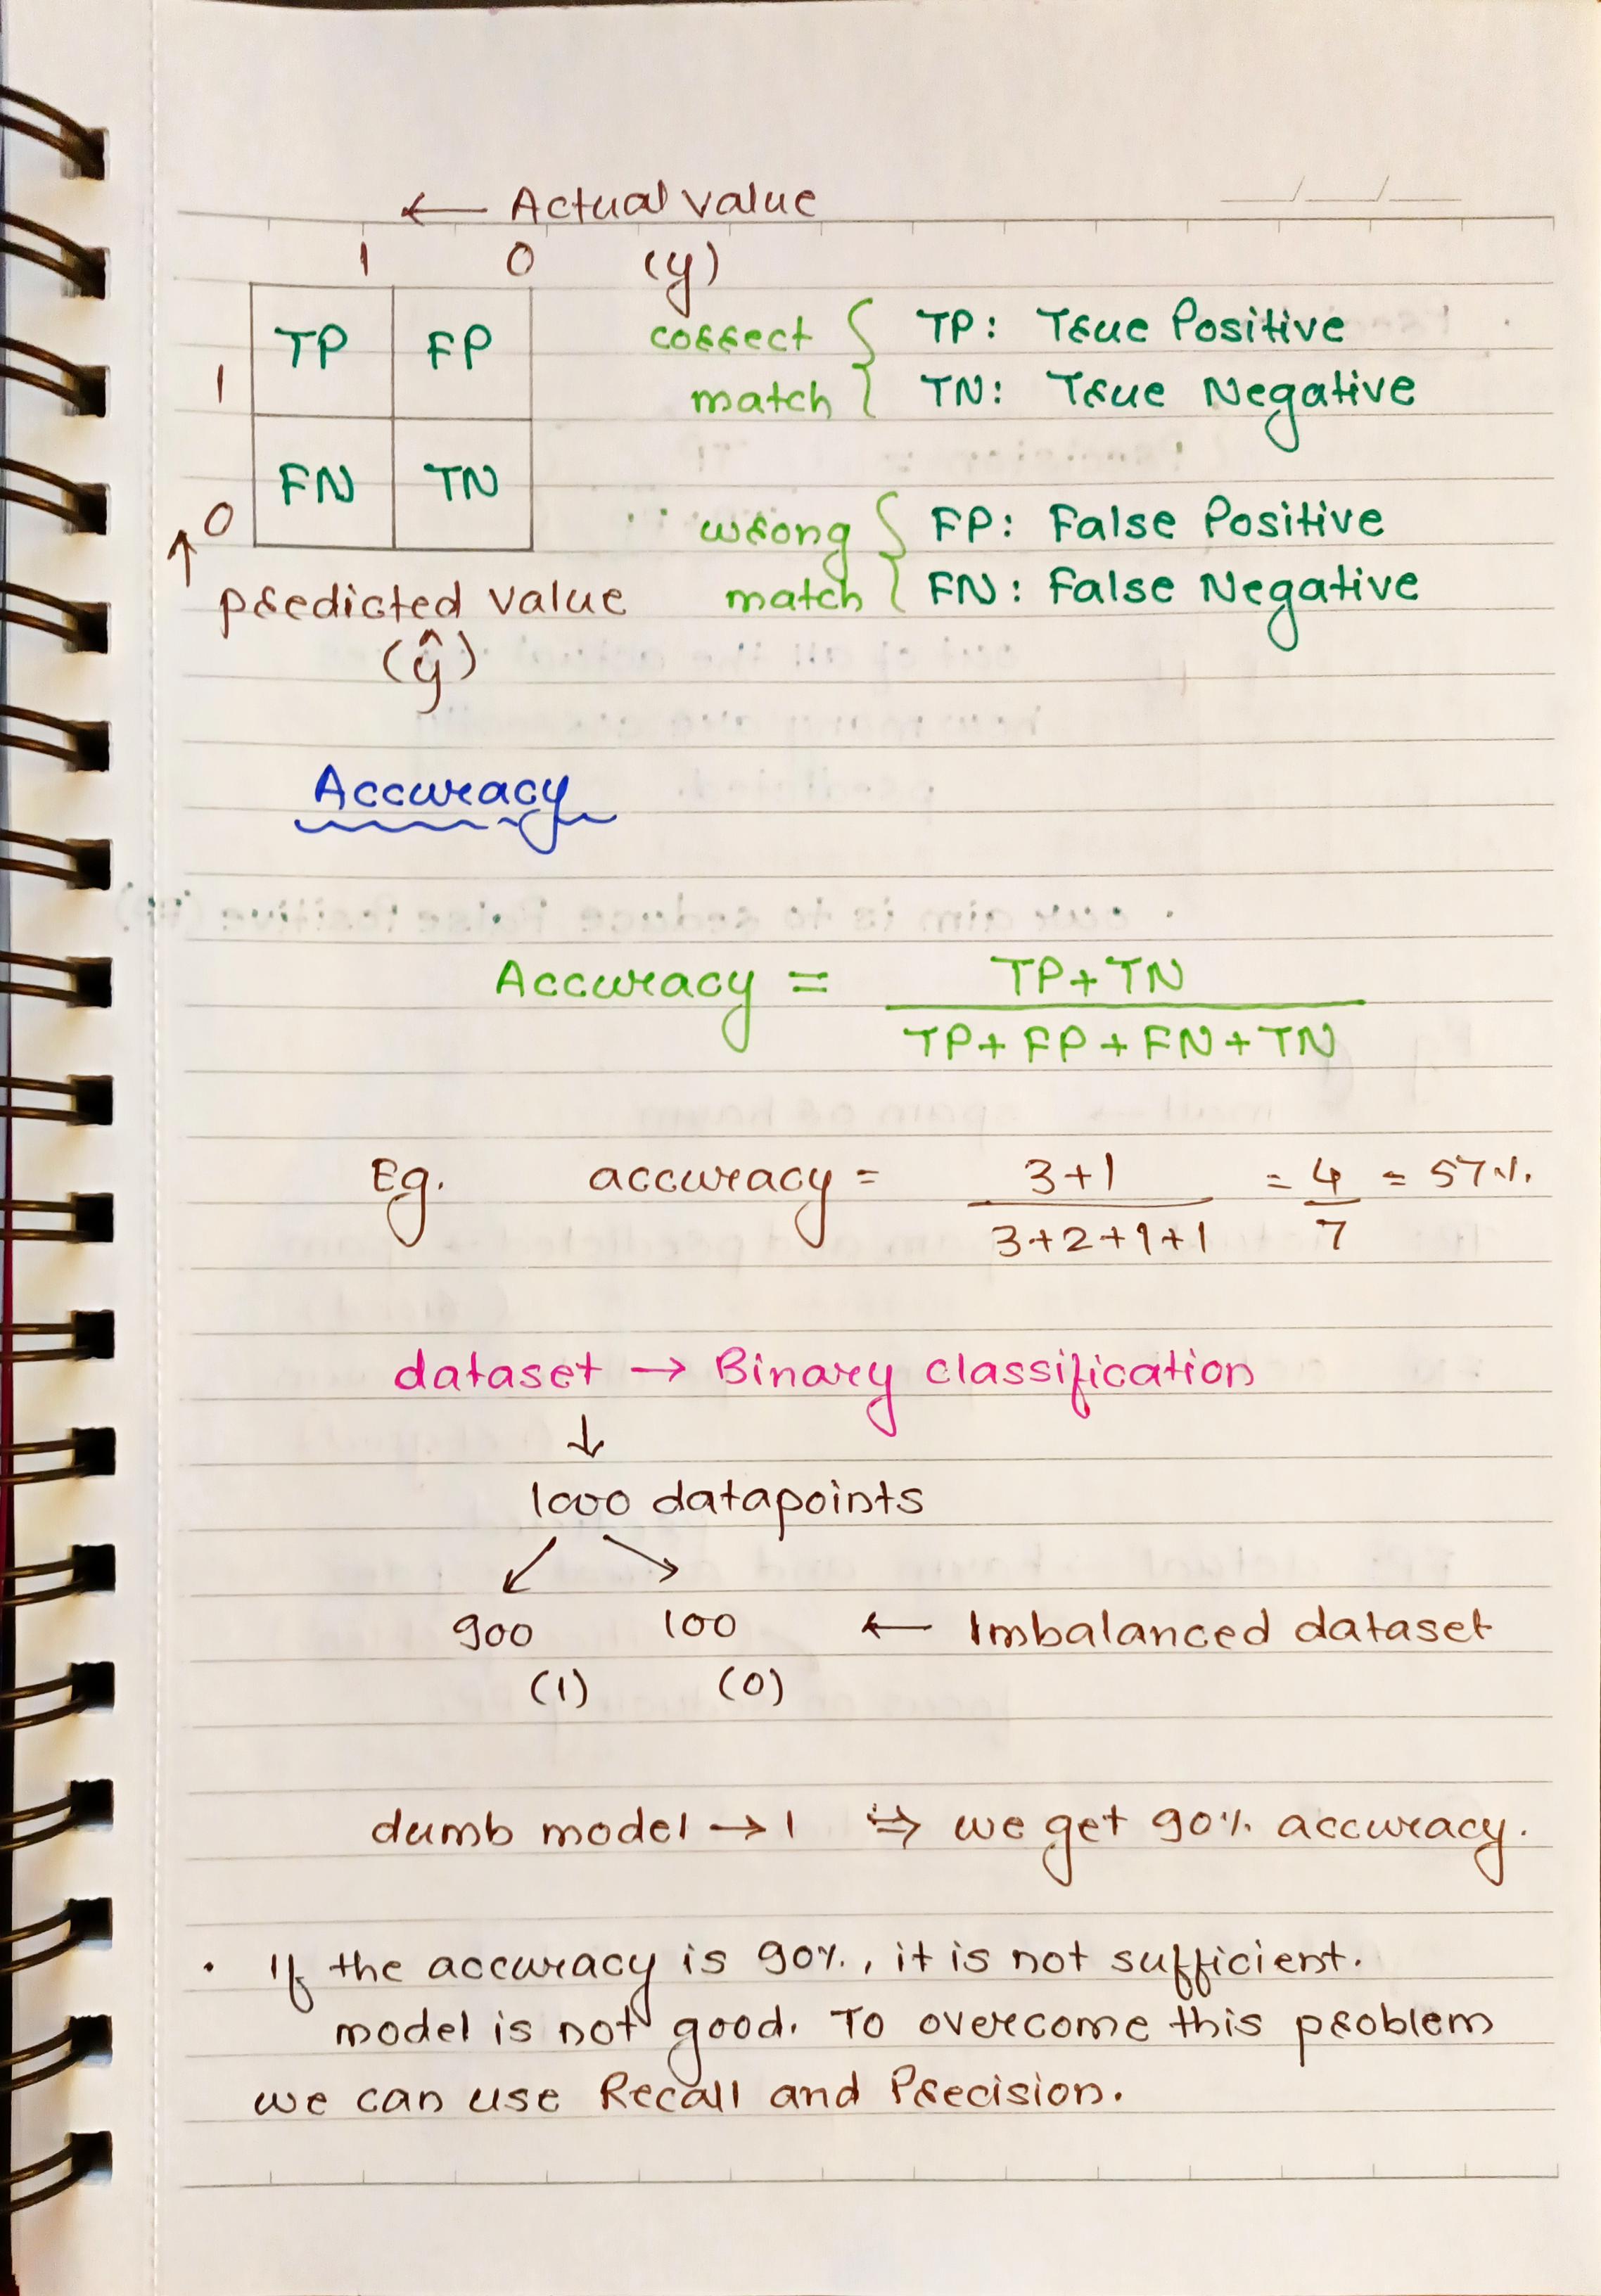 ← Actual value
1 0 (y)
TP FP
1
FN TN
0
↑ predicted value
(ŷ)
correct match { TP: True Positive
TN: True Negative
wrong match { FP: False Positive
FN: False Negative
Accuracy
Accuracy = TP+TN / TP+FP+FN+TN
Eg. accuracy = 3+1 / 3+2+1+1 = 4/7 = 57%
dataset → Binary classification
↓
1000 datapoints
↙ ↘
900 100 ← Imbalanced dataset
(1) (0)
dumb model → 1 ⇒ we get 90% accuracy.
• If the accuracy is 90%, it is not sufficient.
model is not good. To overcome this problem
we can use Recall and Precision.